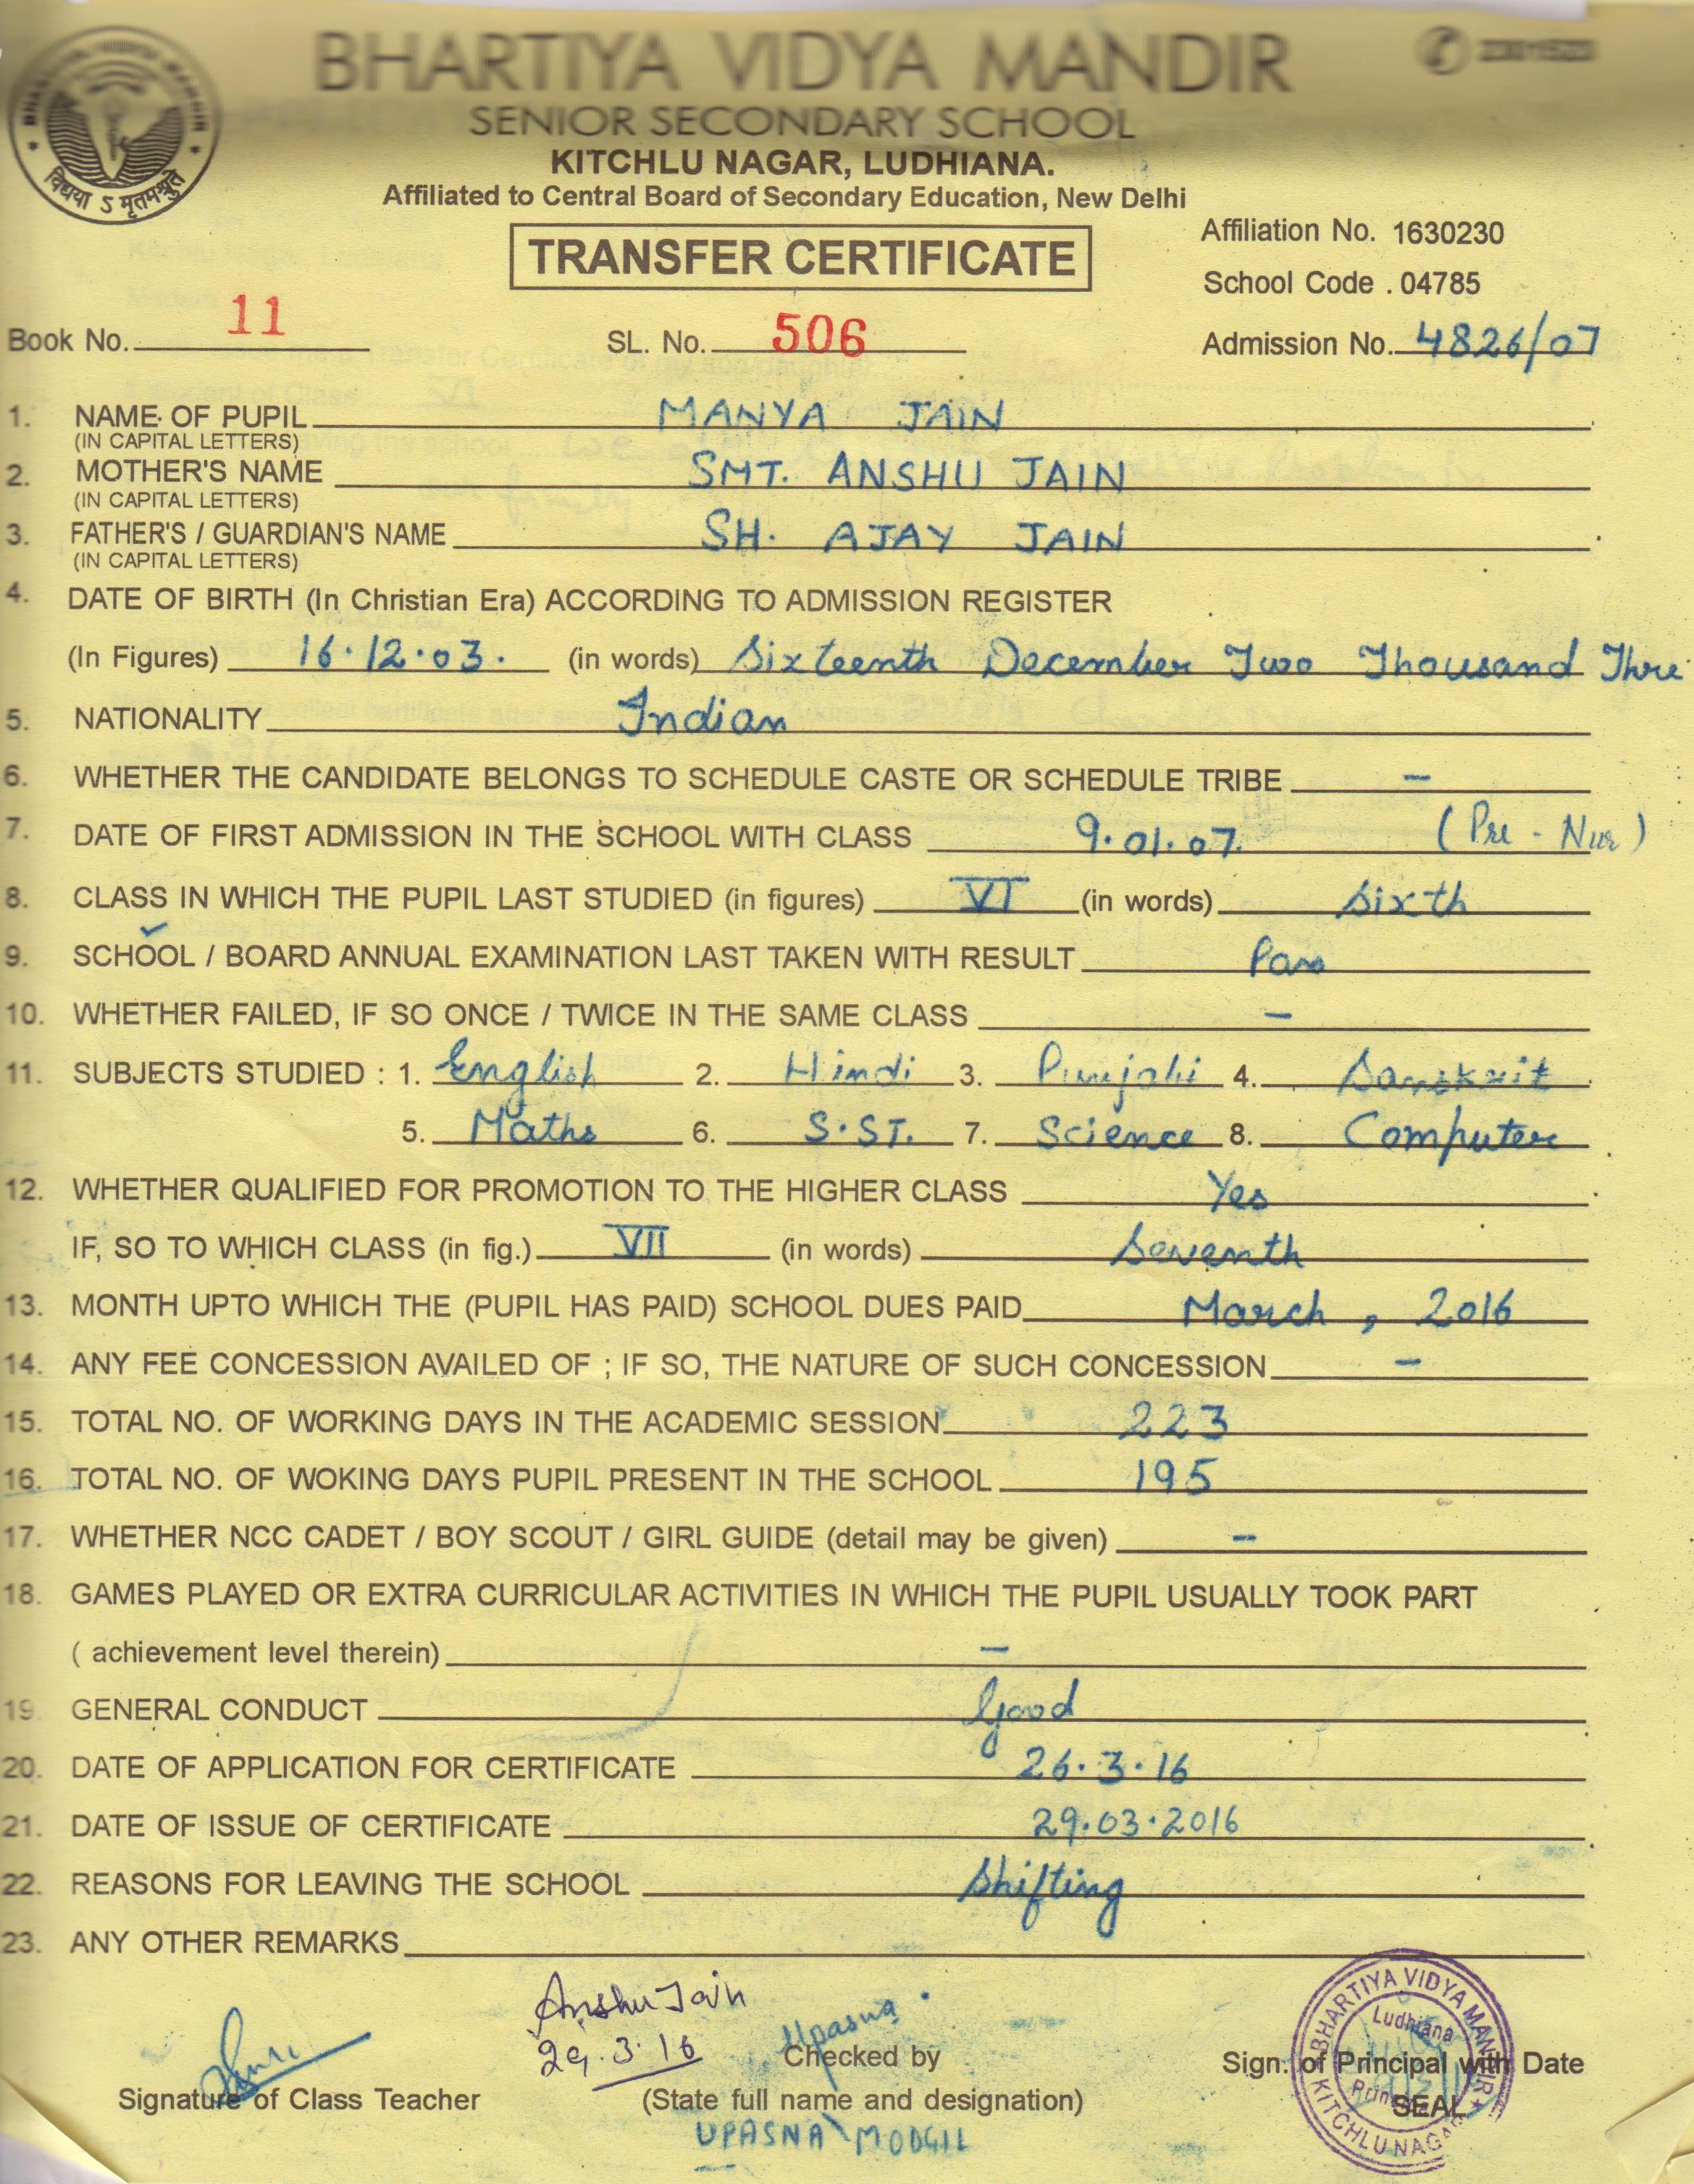 BHARTIYA VIDYA MANDIR
SENIOR SECONDARY SCHOOL
KITCHLU NAGAR, LUDHIANA.
Affiliated to Central Board of Secondary Education, New Delhi
विद्यया ऽ मृतमश्नुते
TRANSFER CERTIFICATE
Affiliation No. 1630230
School Code . 04785
Book No. 11 SL. No. 506 Admission No. 4826/07
1. NAME OF PUPIL MANYA JAIN
(IN CAPITAL LETTERS)
2. MOTHER'S NAME SMT. ANSHU JAIN
(IN CAPITAL LETTERS)
3. FATHER'S / GUARDIAN'S NAME SH. AJAY JAIN
(IN CAPITAL LETTERS)
4. DATE OF BIRTH (In Christian Era) ACCORDING TO ADMISSION REGISTER
(In Figures) 16.12.03. (in words) Sixteenth December Two Thousand Thre
5. NATIONALITY Indian
6. WHETHER THE CANDIDATE BELONGS TO SCHEDULE CASTE OR SCHEDULE TRIBE –
7. DATE OF FIRST ADMISSION IN THE SCHOOL WITH CLASS 9.01.07. (Pre - Nur)
8. CLASS IN WHICH THE PUPIL LAST STUDIED (in figures) VI (in words) Sixth
9. SCHOOL / BOARD ANNUAL EXAMINATION LAST TAKEN WITH RESULT Pass
10. WHETHER FAILED, IF SO ONCE / TWICE IN THE SAME CLASS –
11. SUBJECTS STUDIED : 1. English 2. Hindi 3. Punjabi 4. Sanskrit
5. Maths 6. S.ST. 7. Science 8. Computer
12. WHETHER QUALIFIED FOR PROMOTION TO THE HIGHER CLASS Yes
IF, SO TO WHICH CLASS (in fig.) VII (in words) Seventh
13. MONTH UPTO WHICH THE (PUPIL HAS PAID) SCHOOL DUES PAID March, 2016
14. ANY FEE CONCESSION AVAILED OF ; IF SO, THE NATURE OF SUCH CONCESSION –
15. TOTAL NO. OF WORKING DAYS IN THE ACADEMIC SESSION 223
16. TOTAL NO. OF WOKING DAYS PUPIL PRESENT IN THE SCHOOL 195
17. WHETHER NCC CADET / BOY SCOUT / GIRL GUIDE (detail may be given) –
18. GAMES PLAYED OR EXTRA CURRICULAR ACTIVITIES IN WHICH THE PUPIL USUALLY TOOK PART
( achievement level therein) –
19. GENERAL CONDUCT Good
20. DATE OF APPLICATION FOR CERTIFICATE 26.3.16
21. DATE OF ISSUE OF CERTIFICATE 29.03.2016
22. REASONS FOR LEAVING THE SCHOOL Shifting
23. ANY OTHER REMARKS
Anshu Jain
29.3.16
Upasna
Signature of Class Teacher
Checked by
(State full name and designation)
UPASNA MODGIL
Sign. of Principal with Date
SEAL
BHARTIYA VIDYA MANDIR
KITCHLU NAGAR
Ludhiana